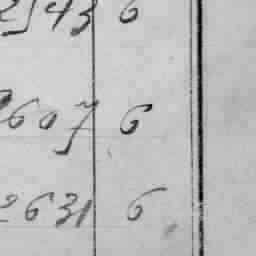 2543 6
2607 6
2631 6